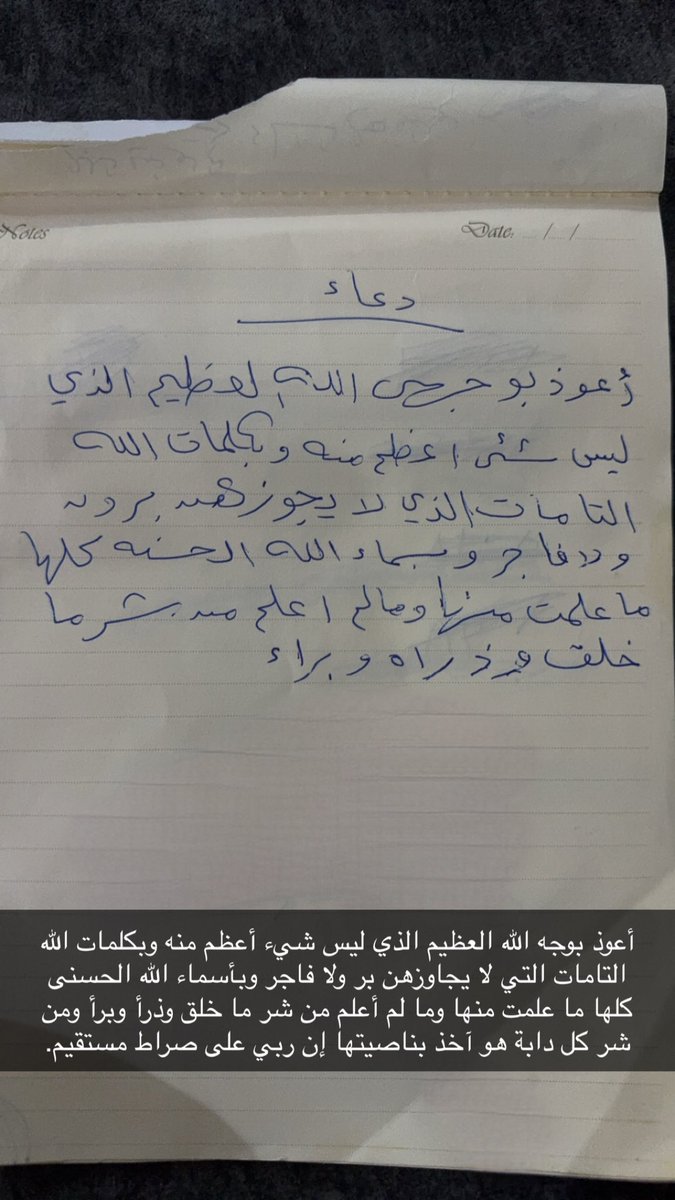 Notes
Date: / /
دعاء
أعوذ بوجهى الله العظيم الذي
ليس شئى اعظم منه وبكلمات الله
التامات الذي لا يجوزهن برون
ولا فاجر وبسماء الله الحسنه كلها
ما علمت منها ومالم اعلم من بشر ما
خلق وذراه وبراء
أعوذ بوجه الله العظيم الذي ليس شيء أعظم منه وبكلمات الله
التامات التي لا يجاوزهن بر ولا فاجر وبأسماء الله الحسنى
كلها ما علمت منها وما لم أعلم من شر ما خلق وذرأ وبرأ ومن
شر كل دابة هو آخذ بناصيتها إن ربي على صراط مستقيم.